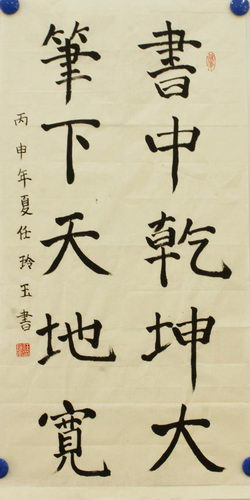 書中乾坤大
筆下天地寬
丙申年夏任玲玉書